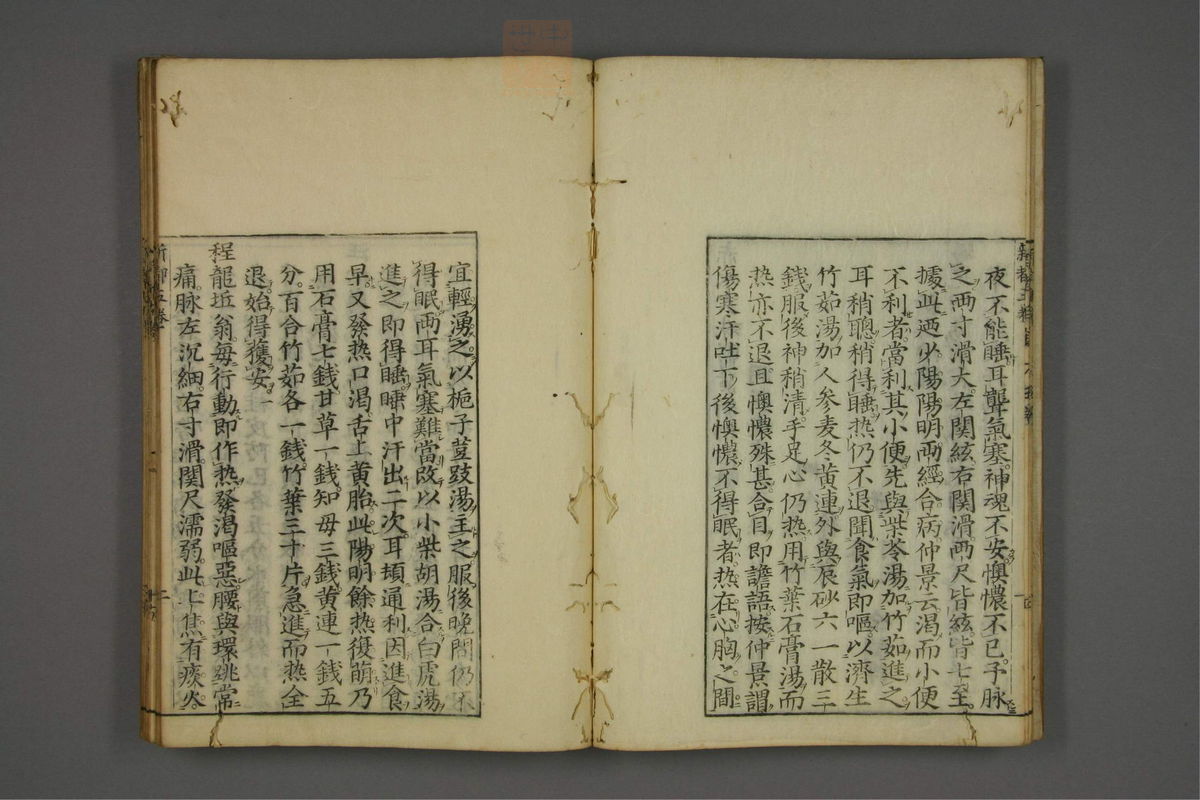 夜不能睡耳聾氣塞神魂不安懊憹不已予脉
之兩寸滑大左関絃右関滑兩尺皆絃皆七至
據此迺少陽陽明兩經合病仲景云渴而小便
不利者當利其小便先與柴苓湯加竹茹進之
耳稍聰稍得睡热仍不退聞食氣即嘔以濟生
竹茹湯加人参麦冬黄連外與辰砂六一散三
錢服後神稍清手足心仍热用竹葉石膏湯而
热亦不退且懊憹殊甚合目即譫語按仲景謂
傷寒汗吐下後懊憹不得眠者热在心胸之間
宜輕湧之以梔子荳豉湯主之服後晚間仍不
得眠兩耳氣塞難當改以小柴胡湯合白虎湯
進之即得睡睡中汗出二次耳頃通利因進食
早又發热口渴舌上黄胎此陽明餘热復萌乃
用石膏七錢甘草一錢知母三錢黄連一錢五
分百合竹茹各一錢竹葉三十片急進而热全
退始得獲安
程龍坵翁每行動即作热發渴嘔惡腰與環跳常
痛脉左沉細右寸滑関尺濡弱此上焦有痰火